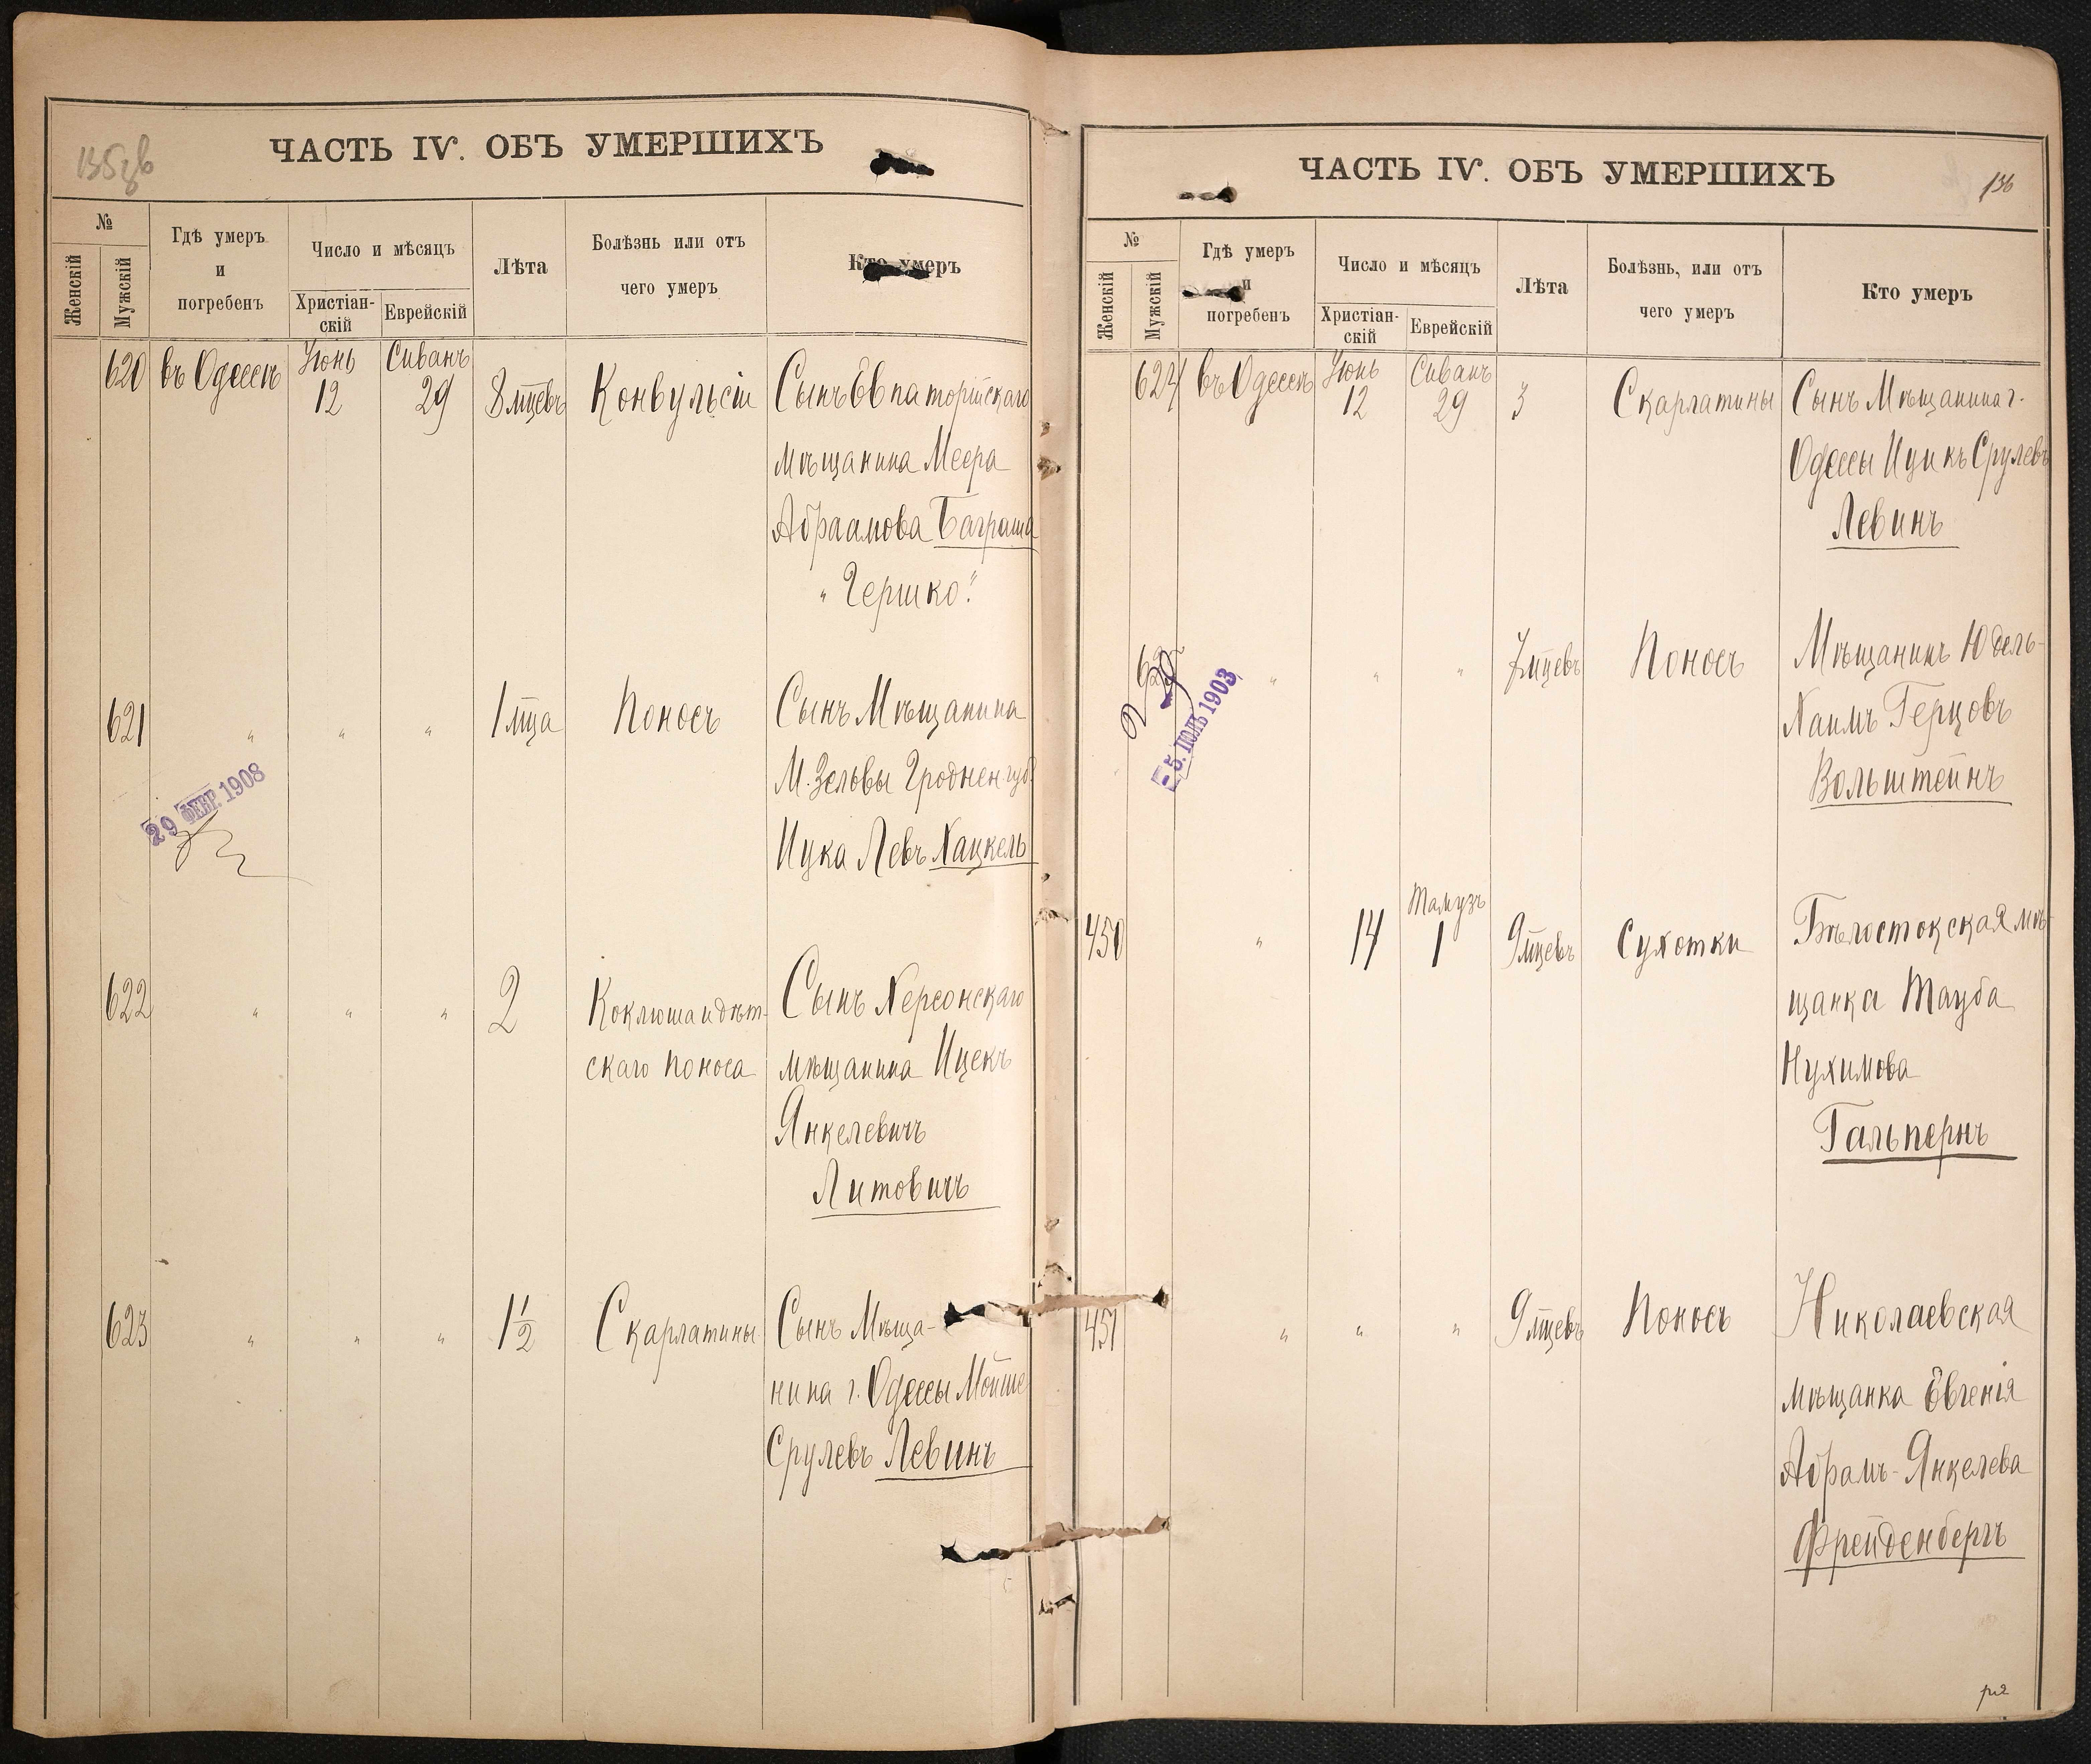 135 об
ЧАСТЬ IV. ОБЪ УМЕРШИХЪ
№
Женскій
Мужскій
Гдѣ умеръ
и
погребенъ
Число и мѣсяцъ
Христіан-
скій
Еврейскій
Лѣта
Болѣзнь или отъ
чего умеръ
Кто умеръ
620 въ Одессѣ Іюнь 12 Сиванъ 29 8 мцевъ Конвульсіи Сынъ Евпаторійскаго
мѣщанина Меера
Абраамова Баграша
"Гершко"
621 " " " 1 мца Поносъ Сынъ Мѣщанина
М. Зельвы Гроднен губ.
Ицка Левъ Хацкель
29 ФЕВР. 1908
622 " " " 2 Коклюша и дѣт- Сынъ Херсонскаго
скаго поноса мѣщанина Ицекъ
Янкелевичъ
Литовичъ
623 " " " 1½ Скарлатины Сынъ Мѣща-
нина г. Одессы Мойше
Срулевъ Левинъ
ЧАСТЬ IV. ОБЪ УМЕРШИХЪ
136
№
Женскій
Мужскій
Гдѣ умеръ
и
погребенъ
Число и мѣсяцъ
Христіан-
скій
Еврейскій
Лѣта
Болѣзнь, или отъ
чего умеръ
Кто умеръ
624 въ Одессѣ Іюнь 12 Сиванъ 29 3 Скарлатины Сынъ Мѣщанина г.
Одессы Ицикъ Срулевъ
Левинъ
" " " 7 мцевъ Поносъ Мѣщанинъ Юдель-
Хаимъ Герцовъ
Вольштейнъ
- 5. ІЮЛЬ 1903
450 " 14 Тамузъ 1 9 мцевъ Сухотки Бѣлостокская мѣ-
щанка Тауба
Нухимова
Гальпернъ
451 " " " 9 мцевъ Поносъ Николаевская
мѣщанка Евгенія
Абрамъ-Янкелева
Фрейденбергъ